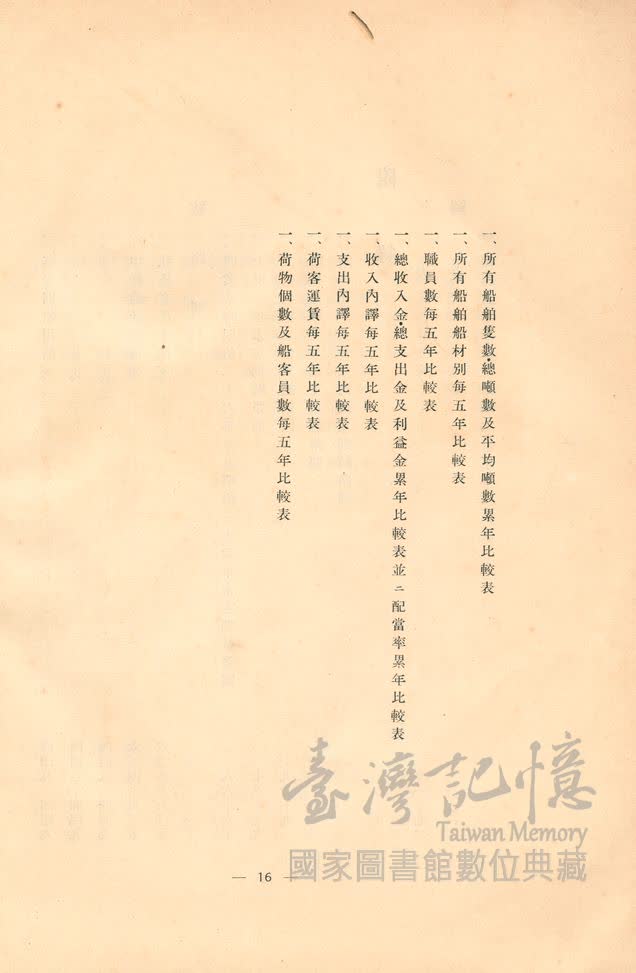 一、所有船舶隻數•總噸數及平均噸數累年比較表
一、所有船舶船材別每五年比較表
一、職員數每五年比較表
一、總收入金•總支出金及利益金累年比較表並ニ配當率累年比較表
一、收入內譯每五年比較表
一、支出內譯每五年比較表
一、荷客運賃每五年比較表
一、荷物個數及船客員數每五年比較表
— 16 —
臺灣記憶
Taiwan Memory
國家圖書館數位典藏